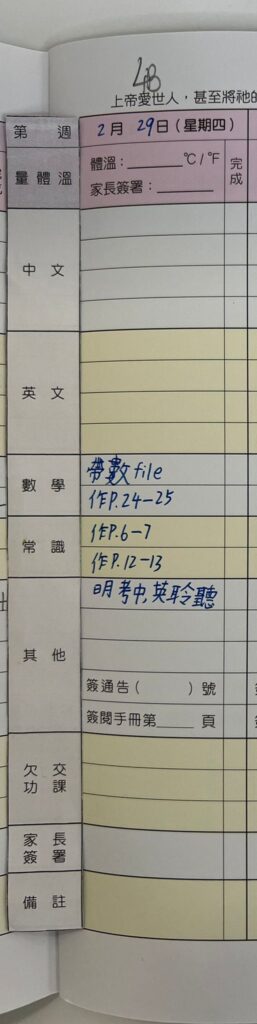 4B
上帝愛世人，甚至將祂的
第 週 2月 29日(星期四)
量體溫 體溫：______°C/°F 完成
家長簽署：______
中文
英文
數學 帶數file
作P.24-25
常識 作P.6-7
作P.12-13
其他 明考中,英聆聽
簽通告( )號
簽閱手冊第____頁
欠交功課
家長簽署
備註